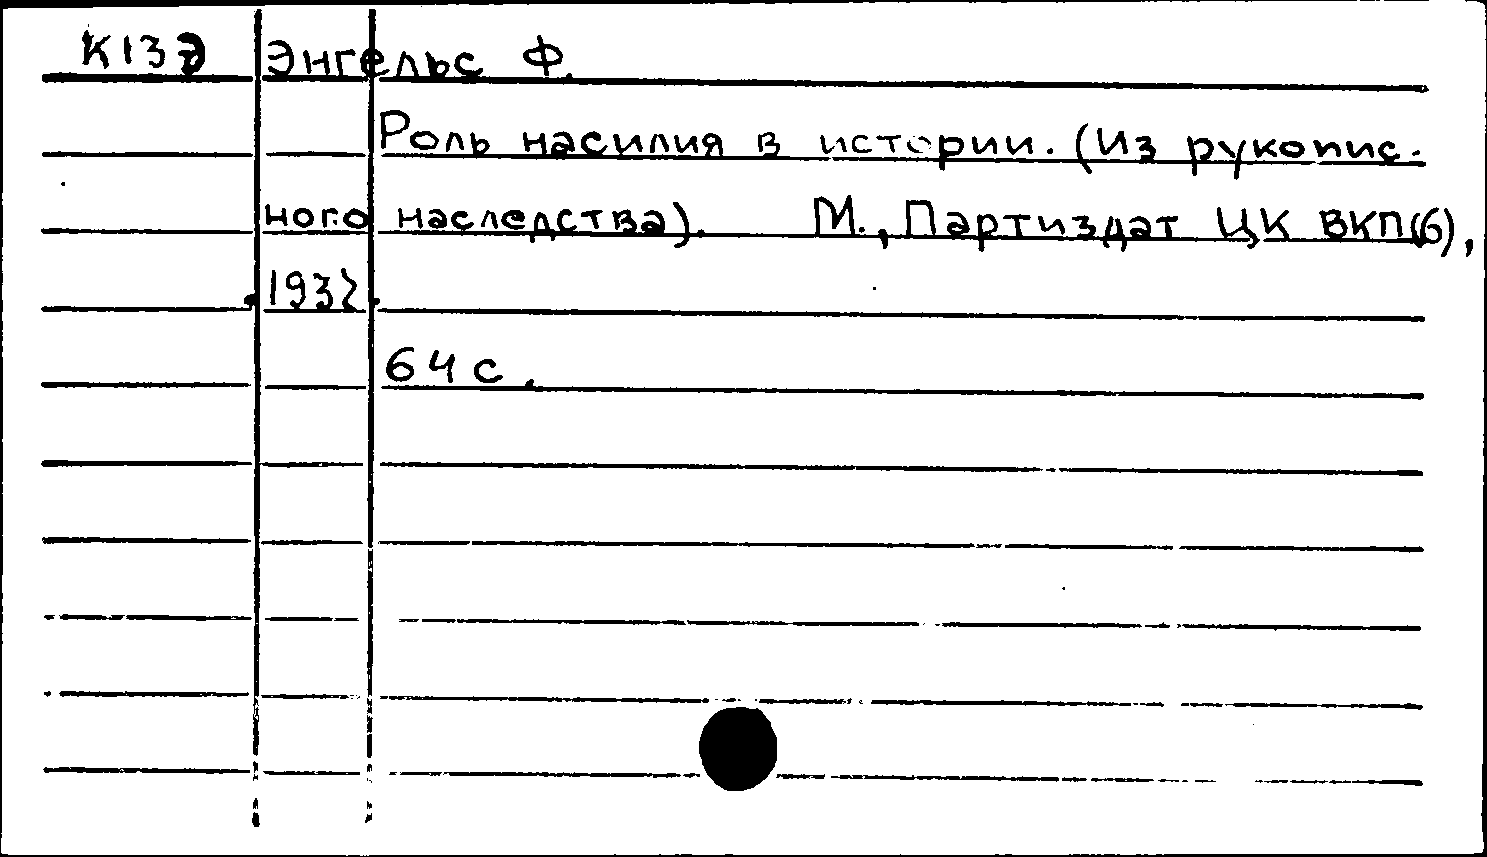 К13Э Энгельс Ф.
Роль насилия в истории. (Из рукопис-
ного наследства). М., Партиздат ЦК ВКП(б),
1932.
64 с.